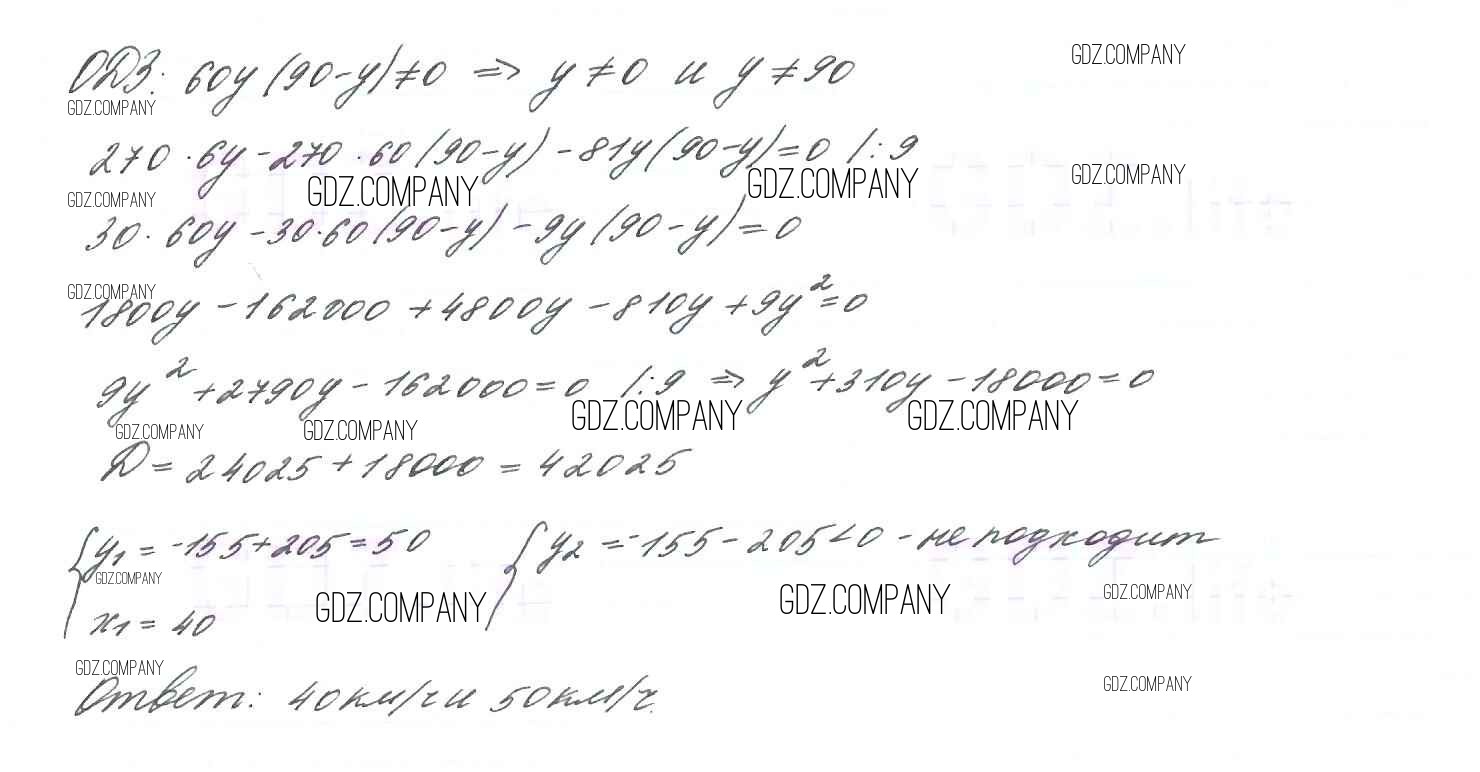 ОДЗ: 60y(90-y)≠0 => y≠0 и y≠90
GDZ.COMPANY
GDZ.COMPANY
270·6y-270·60(90-y)-81y(90-y)=0 /:9
GDZ.COMPANY GDZ.COMPANY GDZ.COMPANY GDZ.COMPANY
30·60y-30·60(90-y)-9y(90-y)=0
GDZ.COMPANY
1800y-162000+4800y-810y+9y²=0
9y²+2790y-162000=0 /:9 => y²+310y-18000=0
GDZ.COMPANY GDZ.COMPANY GDZ.COMPANY GDZ.COMPANY
D=24025+18000=42025
{y₁=-155+205=50 {y₂=-155-205<0 - не подходит
GDZ.COMPANY GDZ.COMPANY GDZ.COMPANY GDZ.COMPANY
x₁=40
GDZ.COMPANY
Ответ: 40км/ч и 50км/ч.
GDZ.COMPANY